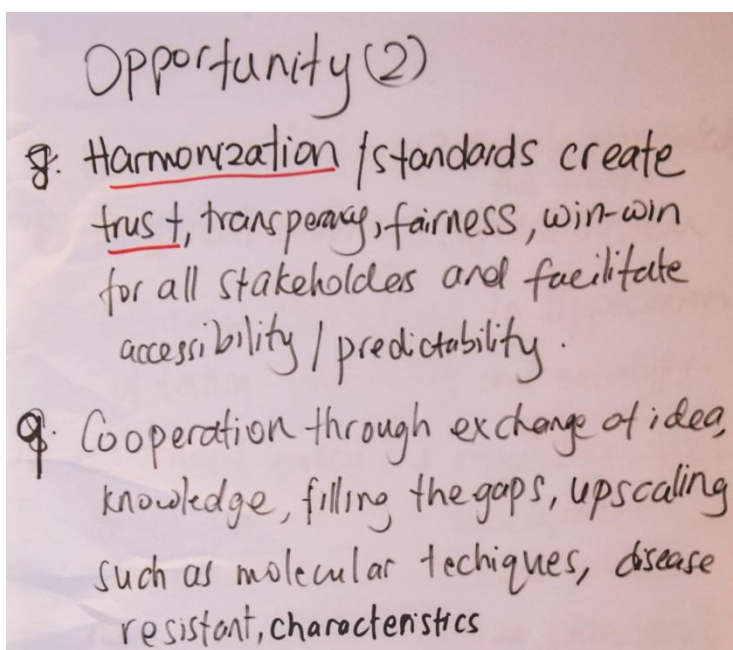 Opportunity (2)
8. Harmonization / standards create
trust, transperacy, fairness, win-win
for all stakeholdes and facilitate
accessibility / predictability.
9. Cooperation through exchange of idea,
knowledge, filling the gaps, upscaling
such as molecular techiques, disease
resistant, characteristics